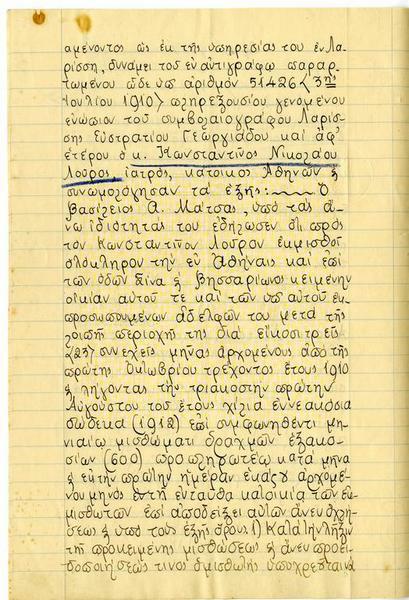 αμένοντος ως εκ της υπηρεσίας του εν Λα-
ρίσση, δυνάμει του εν αντιγράφω παραρ-
τωμένου ώδε υπ αριθμόν 51426 (3ης
Ιουλίου 1910) πληρεξουσίου γενομένου
ενώπιον του συμβολαιογράφου Λαρίσ-
σης Ευστρατίου Γεωργιάδου και αφ'
ετέρου ο κ. Κωνσταντίνος Νικολάου
Λούρος, ιατρός, κάτοικος Αθηνών &
συνωμολόγησαν τα εξής: Ο
Βασίλειος Α. Μάτσας, υπό τας ά-
νω ιδιότητας του εδήλωσεν ότι προς
τον Κωνσταντίνον Λούρον εκμισθοί
ολόκληρον την εν Αθήναις και επί
των οδών & Βησσαρίωνος κειμένην
οικίαν αυτού τε και των υπ αυτού εκ-
προσωπουμένων αδελφών του μετά της
λοιπής περιοχής της διά είκοσι τρεις
(23) συνεχείς μήνας αρχομένους από της
πρώτης Οκτωβρίου τρέχοντος έτους 1910
& λήγοντας την τριακοστήν πρώτην
Αυγούστου του έτους χίλια εννεακόσια
δώδεκα (1912) επί συμφωνηθέντι μη-
νιαίω μισθώματι δραχμών εξακο-
σίων (600) προπληρωτέω κατά μήνα
& εν τη πρώτη ημέρα εκάστου αρχομέ-
νου μηνός εν τη ενταύθα κατοικία των εκ-
μισθωτών επί αποδείξει αυτών άνευ οχλή-
σεως & υπό τους εξής όρους. 1) Κατά την λήξιν
της προκειμένης μισθώσεως & άνευ προει-
δοποιήσεώς τινος ο μισθωτής υποχρεούται να